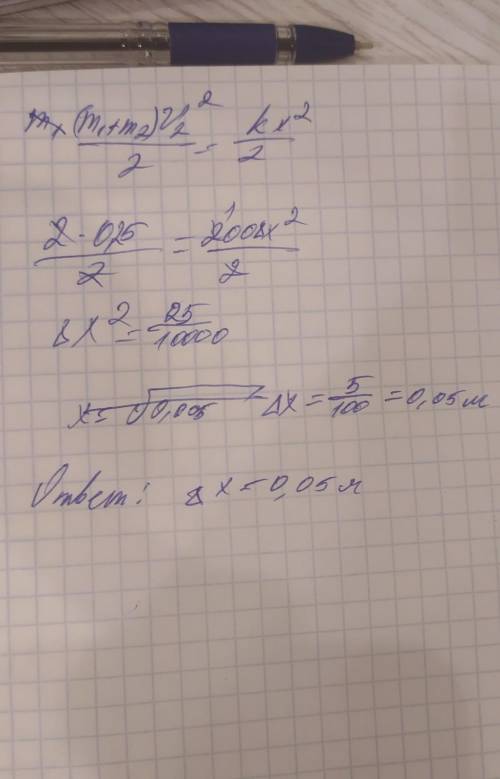 (m₁+m₂)V₂²/2 = kx²/2
2·0,25/2 = 200Δx²/2
Δx² = 25/10000
Δx = 5/100 = 0,05м
Ответ: Δx = 0,05м